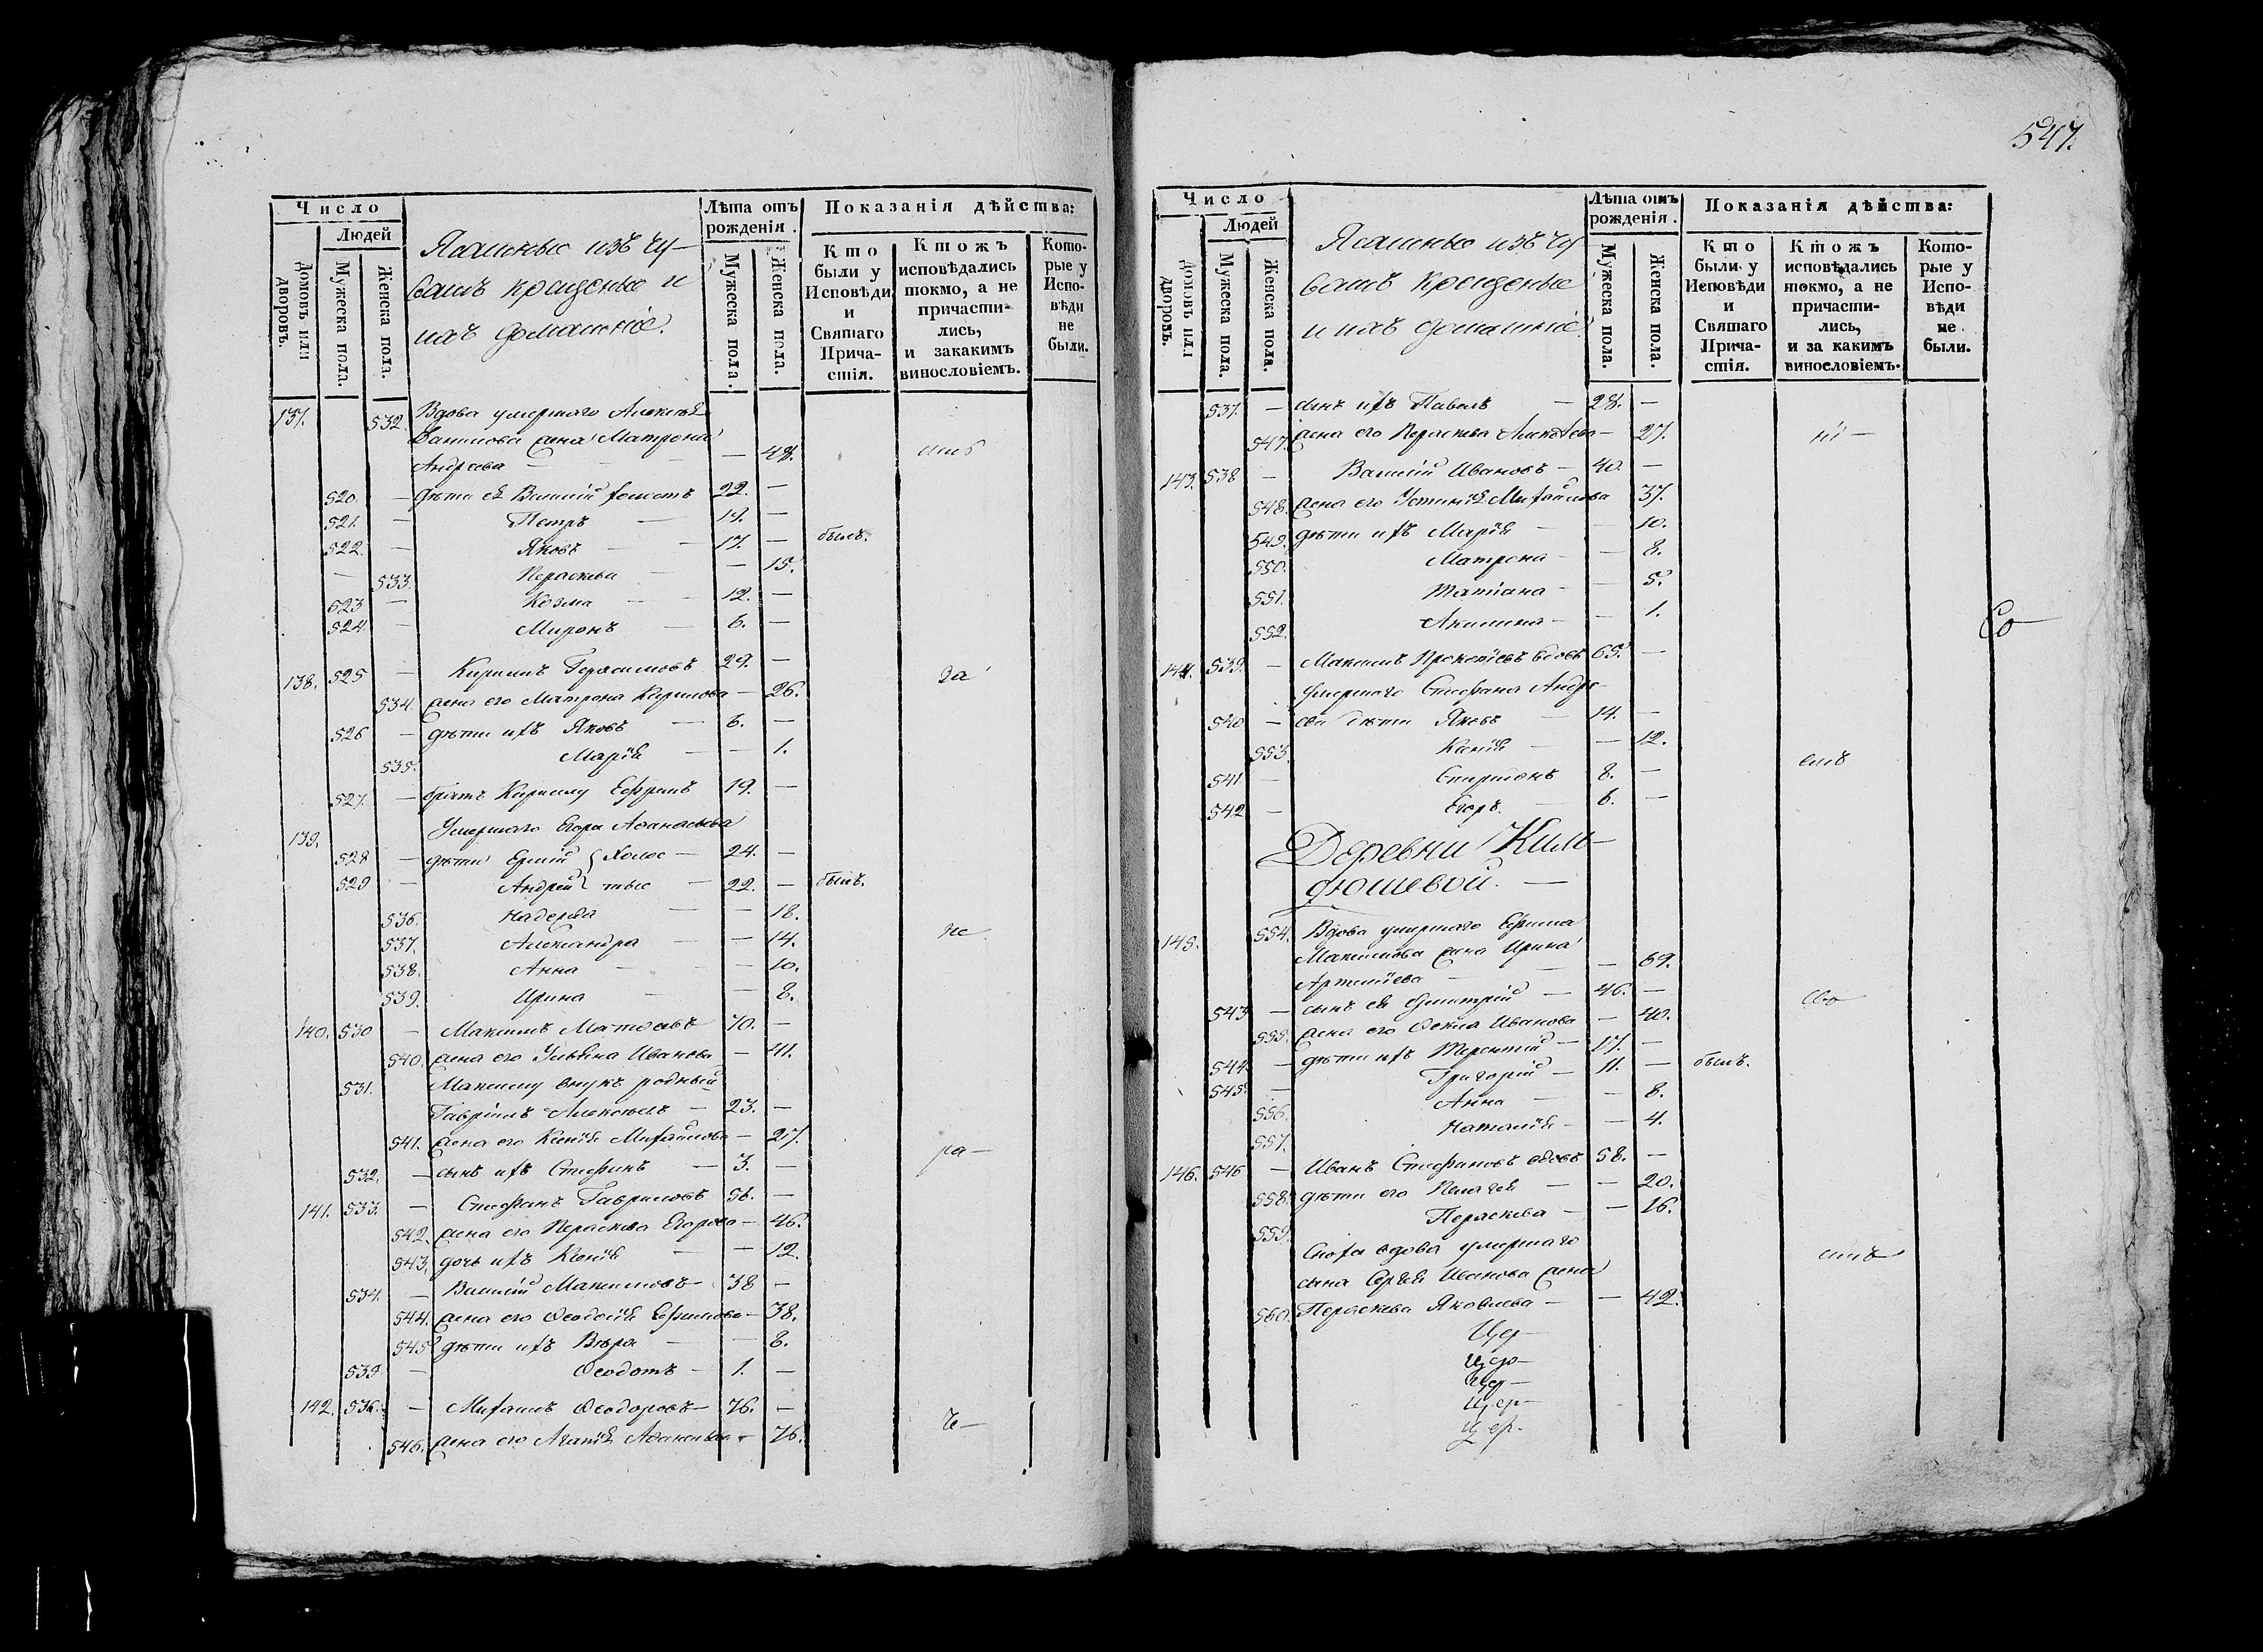 547.
Число
Людей
Домовъ или дворовъ.
Мужеска пола.
Женска пола.
Ясашные изъ чу-
вашъ крещеные и
ихъ домашніе.
Лѣта отъ рожденія.
Мужеска пола.
Женска пола.
Показанія дѣйства:
Кто были у Исповѣди и Святаго Прича-стія.
Ктожъ исповѣдались токмо, а не причасти-лись, и закакимъ винословіемъ.
Кото-рые у Испо-вѣди не были.
137. 532. Вдова умершаго Алексѣя
жена Матрона
Андреева — — 48.
520. — дѣти ея Василій холостъ 22. —
521. — Петръ — 19. —
522. — Яковъ — 17. — былъ.
— 533. Параскева — — 15.
523 — Козма — 12. —
524. — Миронъ — 6. —
138. 525 — Кирилъ Герасимовъ 29. — за
534. жена его Матрона Кирилова — 26.
526 — дѣти ихъ Яковъ — 6. —
535. Марія — — 1.
527. — братъ Кирилу Ефримъ 19. —
139. Умершаго Егора Афанасьева
528 — дѣти Ермій } Холос — 24. —
529 — Андрей } тые — 22. — былъ.
536. Надежда — — 18.
537. Александра — — 14. не
538. Анна — — 10.
539. Ирина — — 8.
140. 530 — Максимъ Матѳеевъ 70. —
540. жена его Ульяна Иванова — 41.
531. Максиму внукъ родный
Гавріилъ Алексѣевъ — 23. —
541. жена его Ксенія Михайлова — 27. ра—
532. — сынъ ихъ Стефанъ — 3. —
141. 533. — Стефанъ Гавриловъ 56. —
542. жена его Параскева Егорова — 46.
543. дочь ихъ Ксенія — — 12.
534. — Василій Максимовъ — 38 —
544. жена его Ѳеодосія Ефимова — 38.
545 дѣти ихъ Вѣра — — 8.
539 — Ѳеодотъ — 1. —
142. 536. — Михаилъ Ѳеодоровъ — 76. —
546. жена его Агапія Афанасьева — 76.
Число
Людей
Домовъ или дворовъ.
Мужеска пола.
Женска пола.
Ясашные изъ чу
вашъ крещеные
и ихъ домашніе
Лѣта отъ рожденія.
Мужеска пола.
Женска пола.
Показанія дѣйства:
Кто были у Исповѣди и Святаго Прича-стія.
Ктожъ исповѣдались токмо, а не причасти-лись, и за какимъ винословіемъ.
Кото-рые у Испо-вѣди не были.
537. — сынъ ихъ Павелъ — 28. —
547. жена его Параскева Алексѣева — 27. ні —
143. 538 — Василій Ивановъ — 40. —
548. жена его Устинія Михайлова 37.
549. дѣти ихъ Марія — — 10.
550. Матрона — — 8.
551. Татіана — — 5.
552. Акилина — — 1.
Со
144. 539. — Максимъ Прокопіевъ вдовъ 65. —
умершаго Стефана Андре-
540 — ева дѣти Яковъ — 14. —
553. Ксенія — — 12.
541 — Спиридонъ 8. —
542 — Егоръ. — 6. —
Деревни Киль-
дюшевой. —
145. 554. Вдова умершаго Ефима
Максимова жена Ирина
Артеміева — — 69.
543 — сынъ ея Дмитрій — 46. —
555. жена его Ѳекла Иванова — 40.
544. — дѣти ихъ Терентій — 17. —
545. — Григорій — 11. — былъ.
556. Анна — — 8.
557. Наталія — — 4.
146. 546 — Иванъ Стефановъ вдовъ 58. —
558. дѣти его Пелагея — — 20.
559. Параскева — — 16.
Сноха вдова умершаго
сына Сергѣя Иванова жена
560. Параскева Яковлева — — 42.
Цер—
Цер—
Цер—
Цер—
Цер.